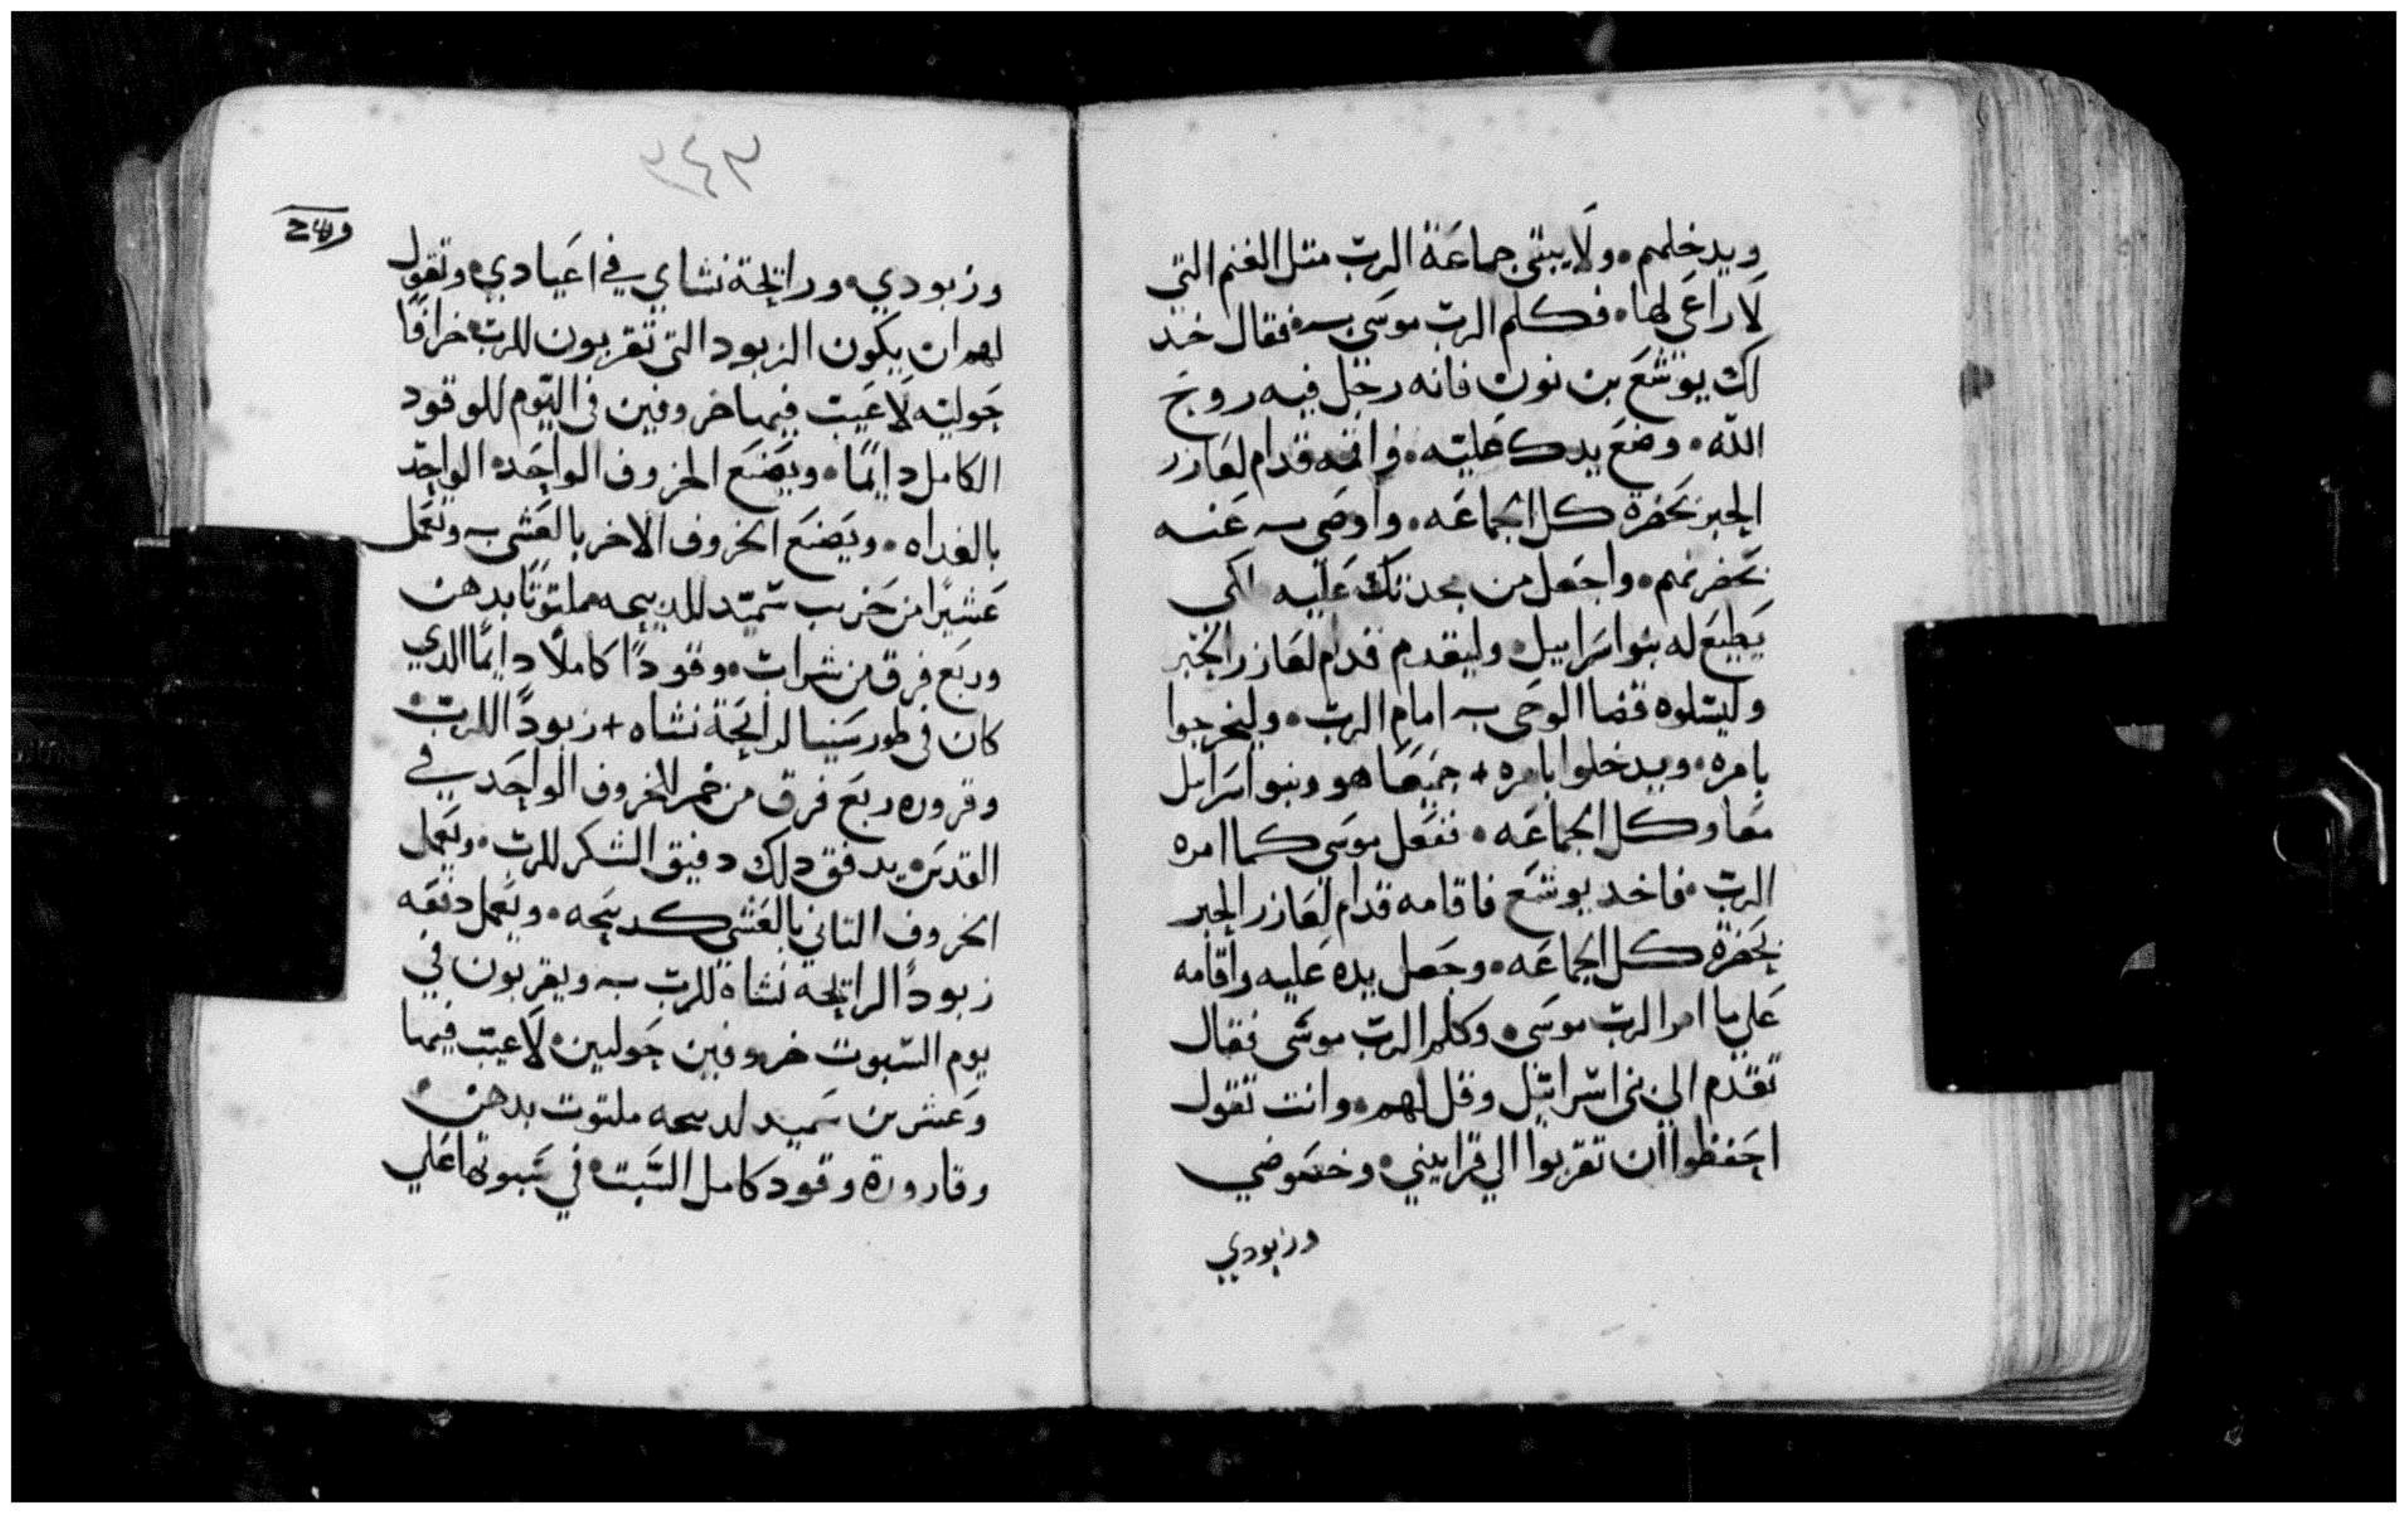 ويدخلهم. ولا يبقى جماعة الرب متل الغنم التي
لا راعى لها. فكلم الرب موسى فقال خد
لك يوشع بن نون فانه رجل فيه روح
الله. وضع يدك عليه. واقمه قدام لعازر
الحبر بحضرة كل الجماعه. واوصى عنه
بحضرتهم. واجعل من مجدتك عليه لكي
يطيع له بنوا سراييل. وليقدم قدام لعازر الحبر
وليتلوه قضا الوحى امام الرب. وليخرجوا
بامره. ويدخلوا بامره + جميعا هو وبنوا سراييل
معا وكل الجماعه. ففعل موسى كما امره
الرب. فاخد يوشع فاقامه قدام لعازر الحبر
بحضرة كل الجماعه. وجعل يده عليه واقامه
على ما امر الرب موسى. وكلم الرب موسى فقال
تقدم الى بنى اسراييل وقل لهم. وانت تقول
احفظوا ان تقربوا الي قرابيني. وخصوصي
وزبودي
٣٤٣
وزبودي. ورايحة نشاي في اعيادي. وتقول
لهم ان يكون الزبود التى تقربون للرب خرافا
حوليه لا عيب فيها خروفين في اليوم للوقود
الكامل دايما. ويصنع الخروف الواحد الواحد
بالغداه. ويصنع الخروف الاخر بالعشى وتعمل
عشيرا من حرب سميد للدبيحه ملتوتا بدهن
وربع فرق من شراب. وقودا كاملا دايما الدي
كان في طور سينا لرايحة نشاه + زبودا للرب
وقروره ربع فرق من خمر للخروف الواحد في
القدس يدفق دلك دفيق الشكر للرب. ويعمل
الخروف التاني بالعشي كدبيحه. ويعمل دفقه
زبودا لرايحه نشاه للرب ويقربون في
يوم السبوت خروفين حوليين لا عيب فيهما
وعشر من سميد لدبيحه ملتوت بدهن
وقارورة وقود كامل السبت في سبوتها على